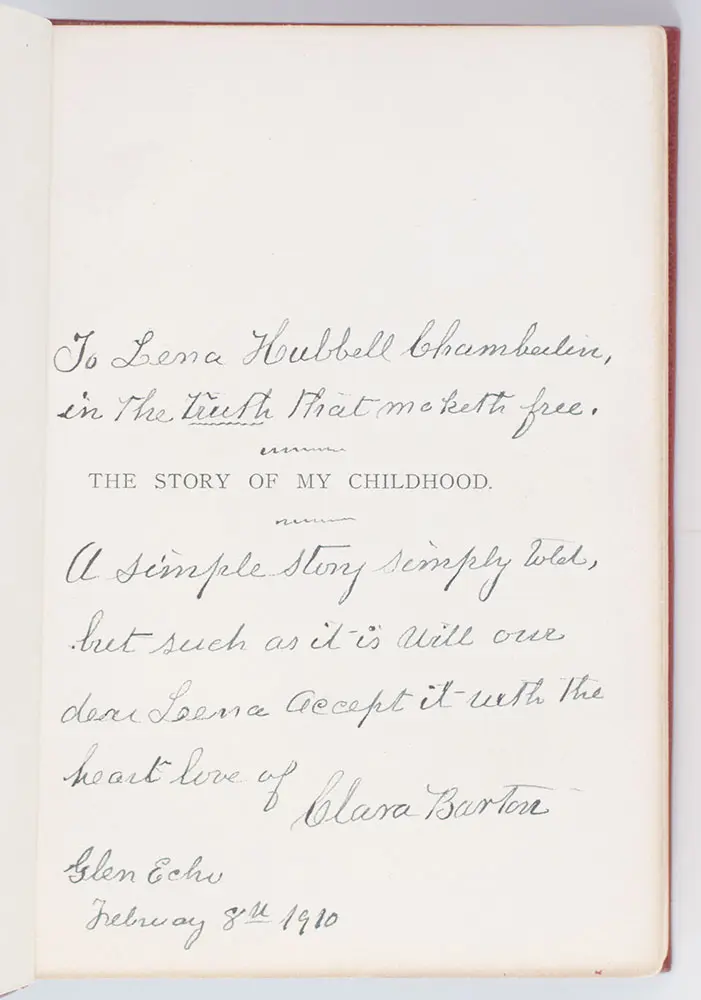 To Lena Hubbell Chamberlin,
in the Truth that maketh free.
THE STORY OF MY CHILDHOOD.
A simple story simply told,
but such as it is will our
dear Leena accept it with the
heart love of
Clara Barton
Glen Echo
February 8th 1910